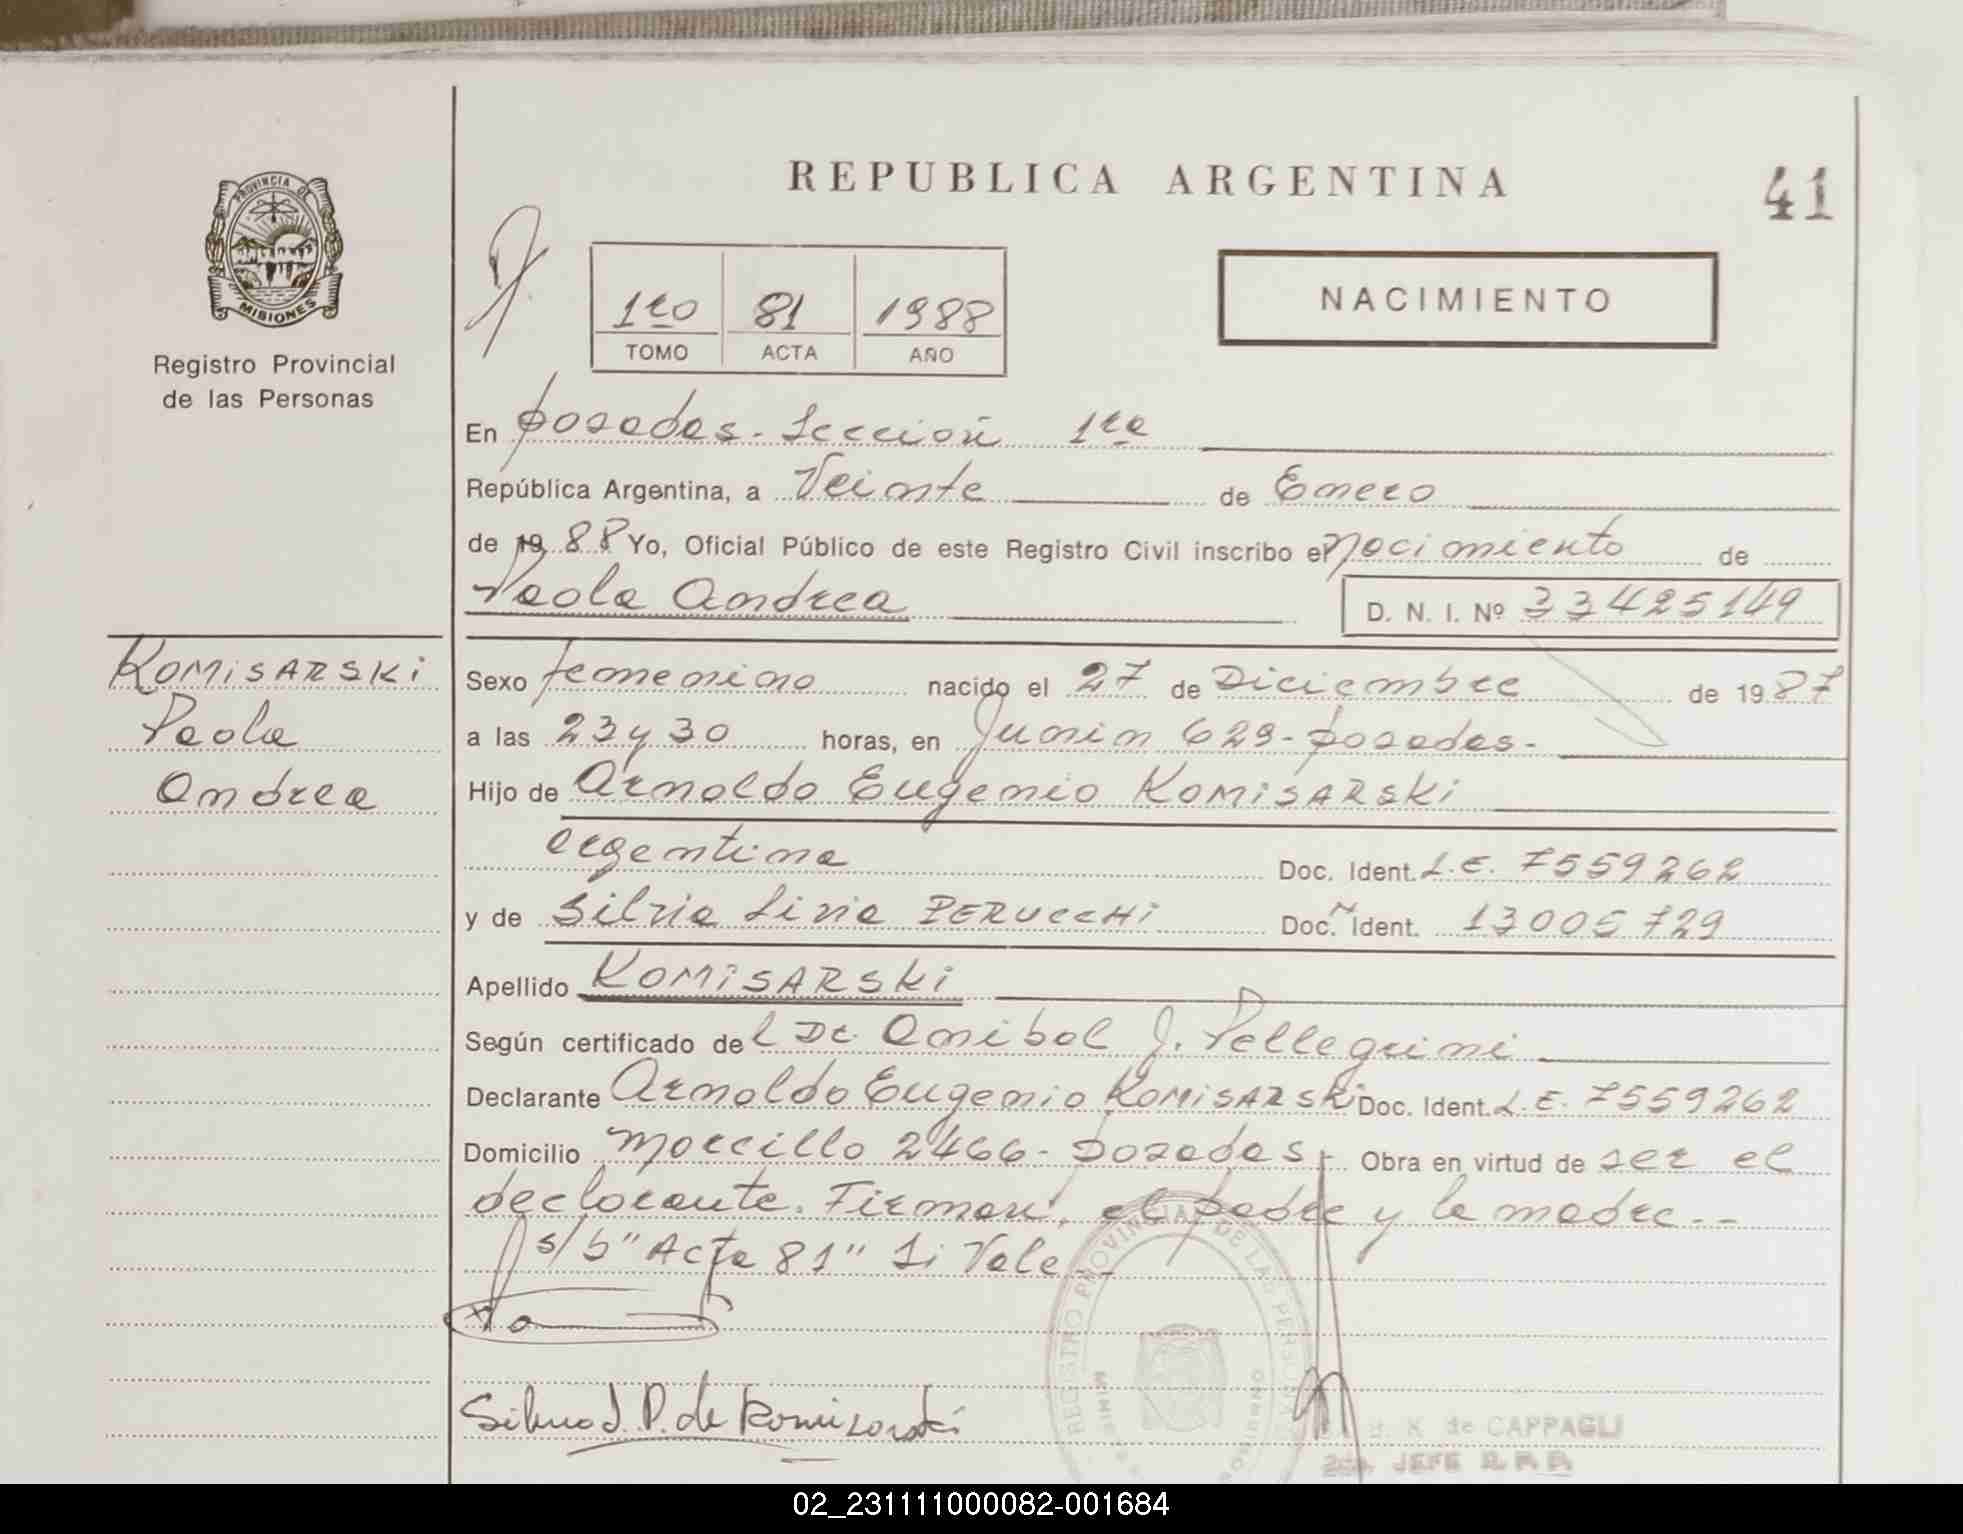 REPUBLICA ARGENTINA
41
PROVINCIA DE
MISIONES
Registro Provincial
de las Personas
1ro 81 1988
TOMO ACTA AÑO
NACIMIENTO
En Posadas - Sección 1ra
República Argentina, a Veinte de Enero
de 1988 Yo, Oficial Público de este Registro Civil inscribo el nacimiento de
Paola Andrea
D. N. I. Nº 33425149
KOMISARSKi
Paola
Andrea
Sexo femenino nacido el 27 de Diciembre de 1987
a las 23 y 30 horas, en Junin 629 - Posadas -
Hijo de Arnoldo Eugenio KOMiSARSKi
argentina Doc. Ident. L.E. 7559262
y de Silvia Livia PERUCCHi Doc. Ident. 13005729
Apellido KOMiSARSKi
Según certificado del Dr. Anibal J. Pellegrini
Declarante Arnoldo Eugenio KOMiSARSKi Doc. Ident. L.E. 7559262
Domicilio Morcillo 2466 - Posadas - Obra en virtud de ser el
declarante. Firman, el padre y la madre --
s/b "Acta 81" Si Vale -
Silvia L. P. de Komisarski
REGISTRO PROVINCIAL DE LAS PERSONAS
K de CAPPAGLI
2da. JEFE R. P. P.
02_231111000082-001684